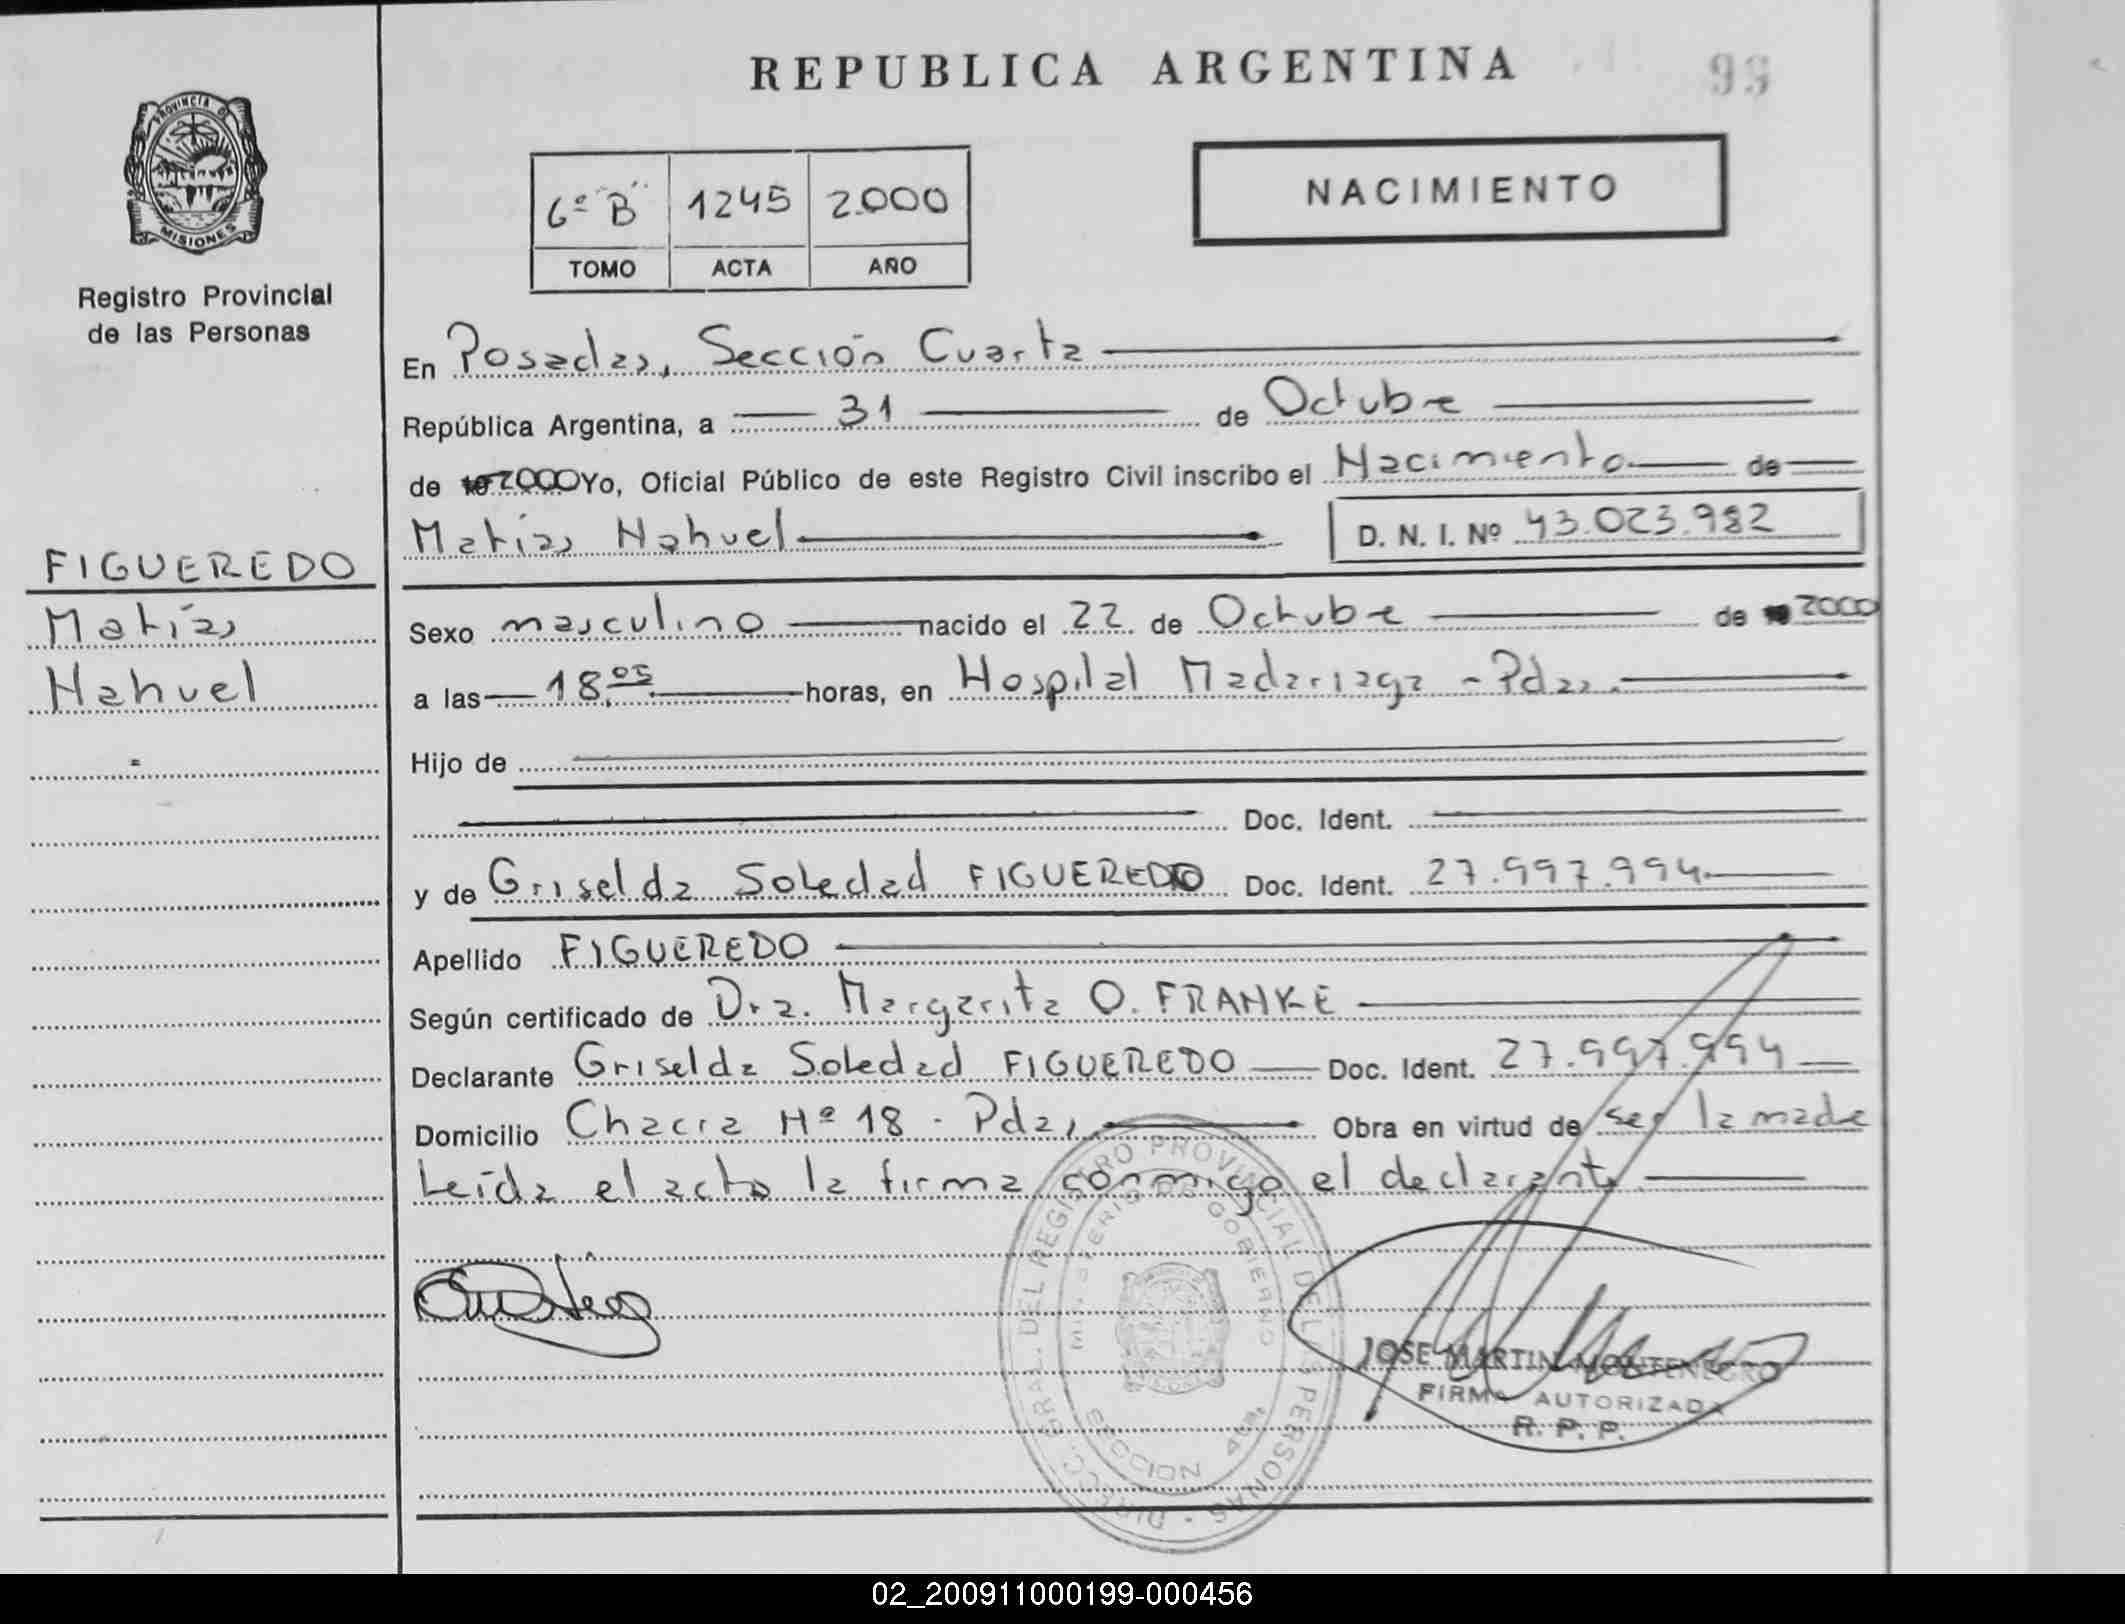 REPUBLICA ARGENTINA
99
PROVINCIA DE
MISIONES
Registro Provincial
de las Personas
6º "B" 1245 2.000
TOMO ACTA AÑO
NACIMIENTO
En Posadas, Sección Cuarta
República Argentina, a 31 de Octubre
de 2000 Yo, Oficial Público de este Registro Civil inscribo el Nacimiento de
Matías Nahuel D. N. I. Nº 43.023.982
FIGUEREDO
Matías
Nahuel
Sexo masculino nacido el 22 de Octubre de 2000
a las 18,05 horas, en Hospital Madariaga - Pdas.
Hijo de
Doc. Ident.
y de Griselda Soledad FIGUEREDO Doc. Ident. 27.997.994
Apellido FIGUEREDO
Según certificado de Dra. Margarita O. FRANKE
Declarante Griselda Soledad FIGUEREDO Doc. Ident. 27.997.994
Domicilio Chacra Nº 18 - Pdas, Obra en virtud de ser la madre
Leída el acta la firma conmigo el declarante.
DIRECC. GRAL. DEL REGISTRO PROVINCIAL DE LAS PERSONAS
MINISTERIO DE GOBIERNO
SECCION 4ta.
JOSE MARTIN MONTENEGRO
FIRMA AUTORIZADA
R. P. P.
02_200911000199-000456